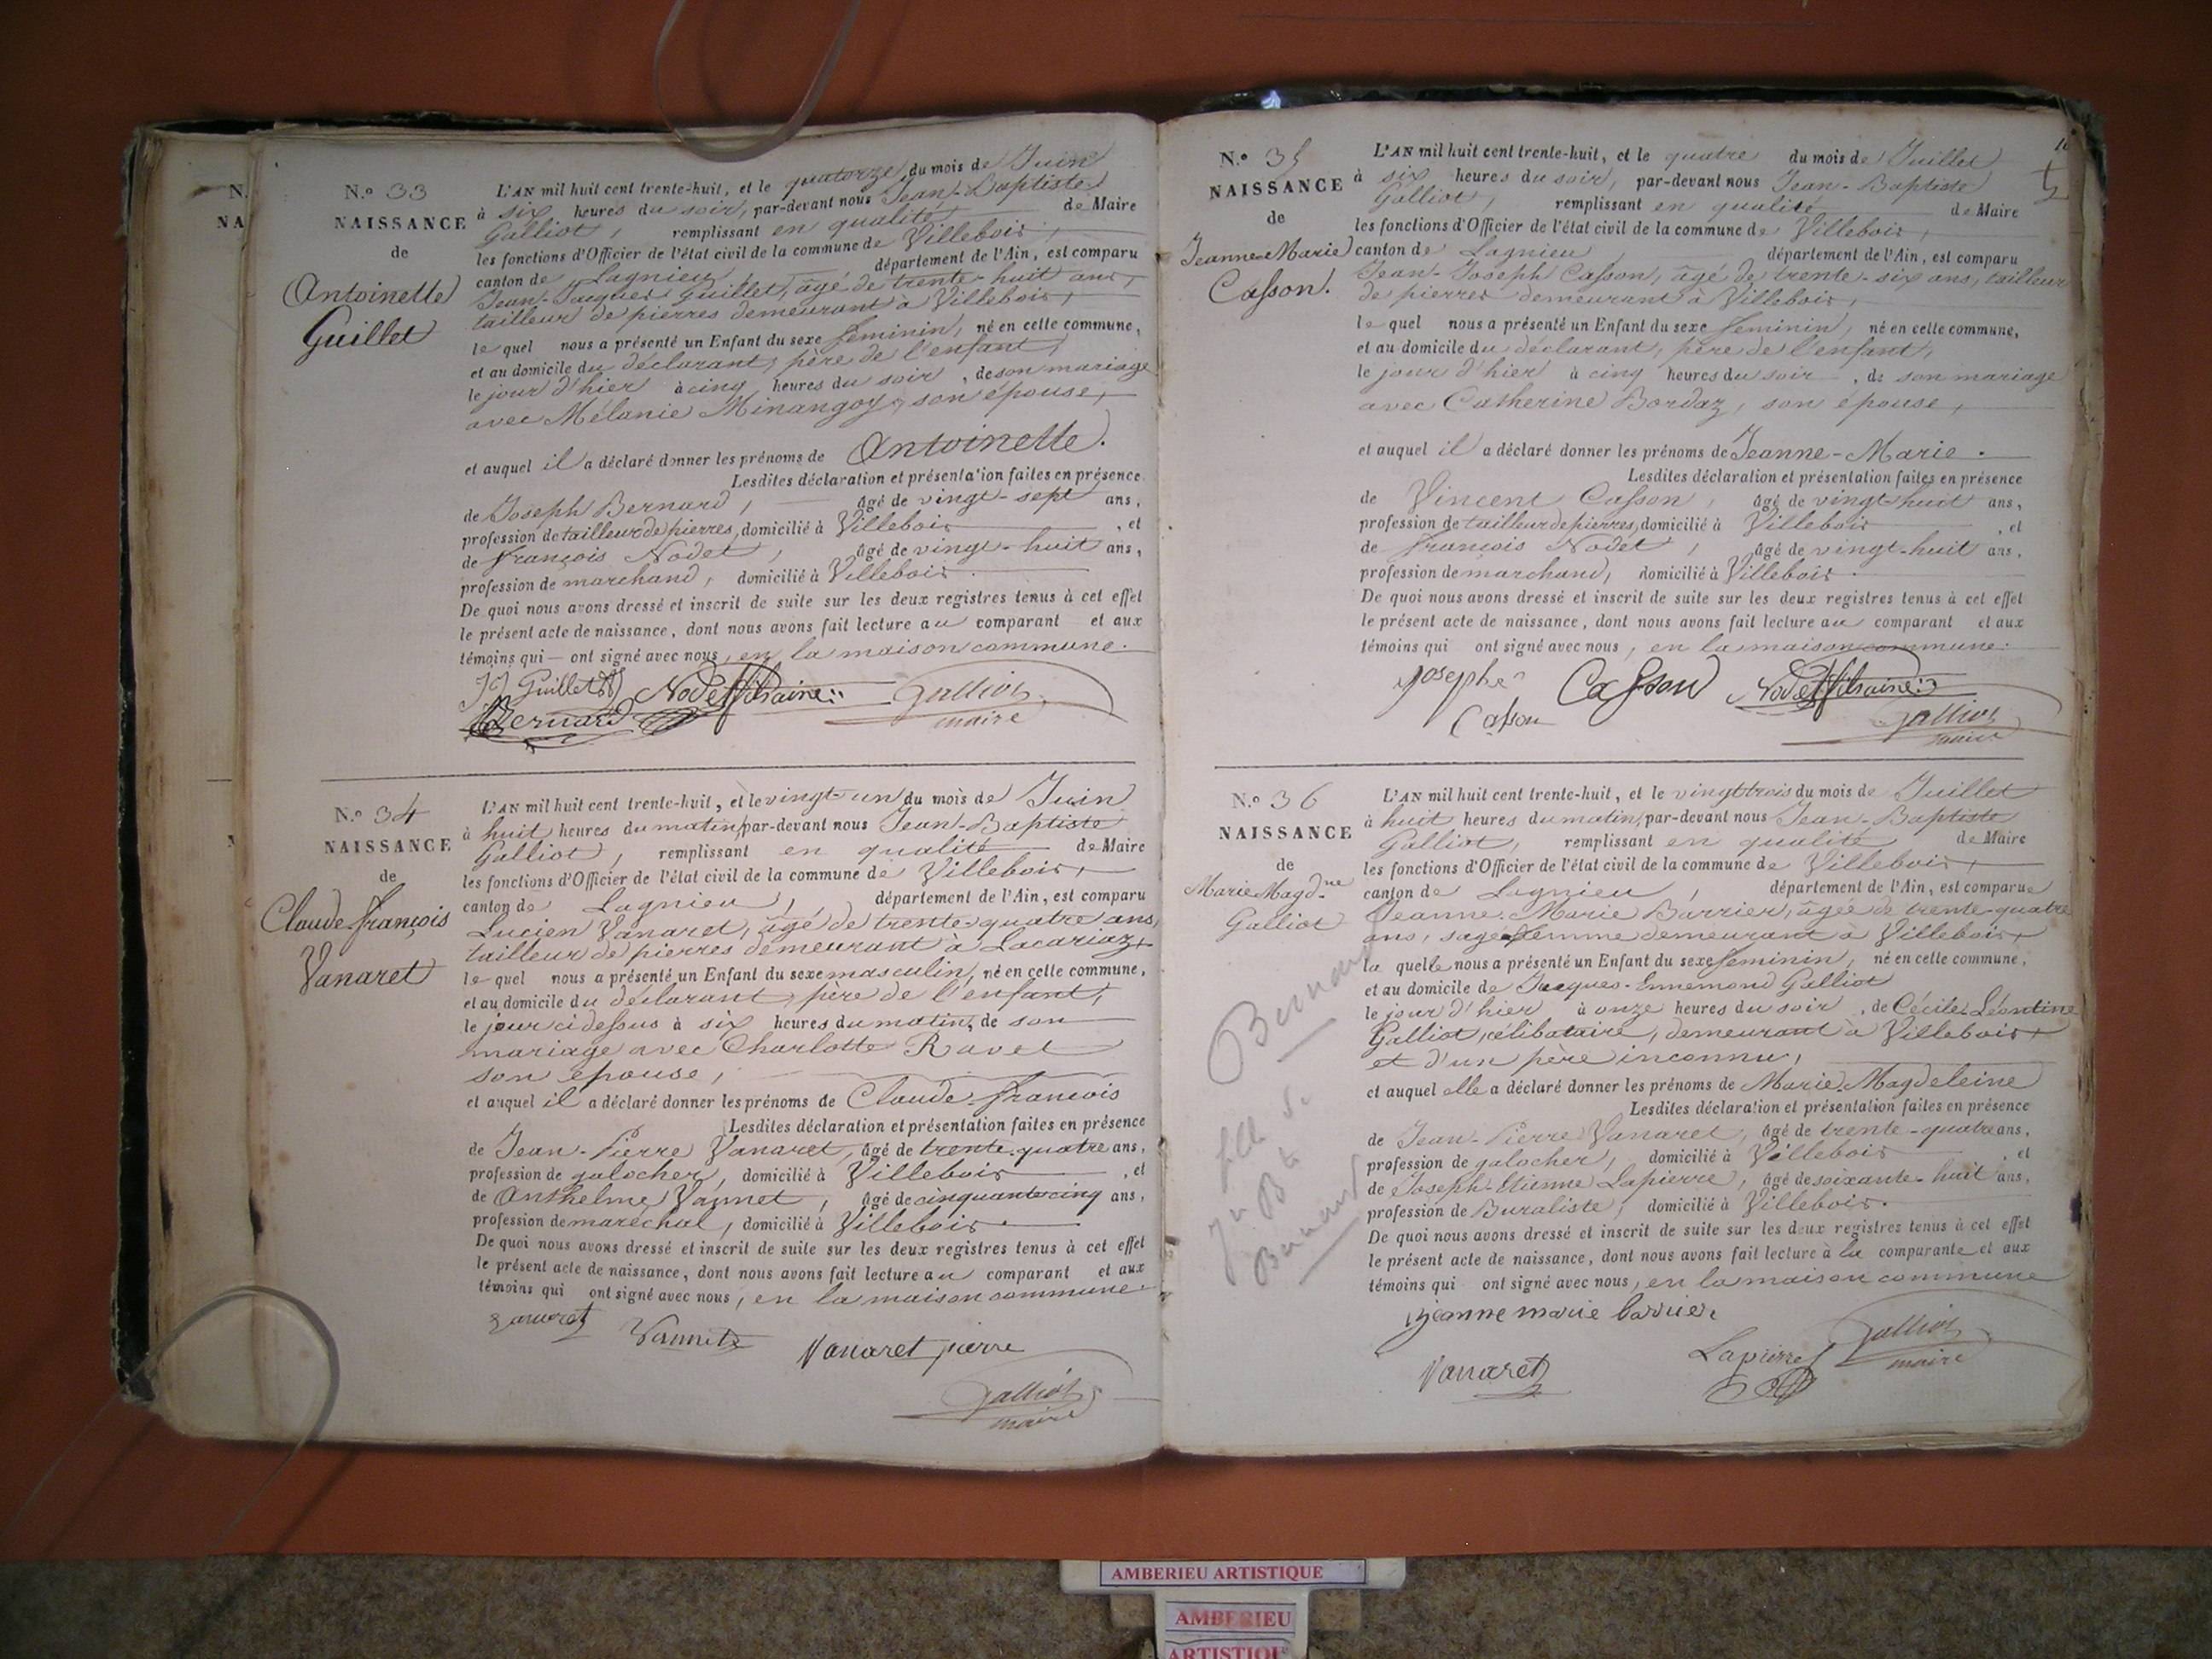 N.
NA
N.o 33
NAISSANCE
de
Antoinette
Guillet
L'AN mil huit cent trente-huit, et le quatorze du mois de Juin
à six heures du soir, par-devant nous Jean-Baptiste
Galliot, remplissant en qualité de Maire
les fonctions d'Officier de l'état civil de la commune de Villebois,
canton de Lagnieu, département de l'Ain, est comparu
Jean-Jacques Guillet, âgé de trente-huit ans,
tailleur de pierres demeurant à Villebois,
le quel nous a présenté un Enfant du sexe feminin, né en cette commune,
et au domicile du déclarant, père de l'enfant,
le jour d'hier à cinq heures du soir, de son mariage
avec Mélanie Minangoy, son épouse,
et auquel il a déclaré donner les prénoms de Antoinette.
Lesdites déclaration et présentation faites en présence
de Joseph Bernard, âgé de vingt-sept ans,
profession de tailleur de pierres, domicilié à Villebois, et
de françois Nodet, âgé de vingt-huit ans,
profession de marchand, domicilié à Villebois.
De quoi nous avons dressé et inscrit de suite sur les deux registres tenus à cet effet
le présent acte de naissance, dont nous avons fait lecture au comparant et aux
témoins qui — ont signé avec nous, en la maison commune.
JJ Guillet Galliot
Bernard maire
N.o 34
NAISSANCE
de
Claude-françois
Vanaret
L'AN mil huit cent trente-huit, et le vingt-un du mois de Juin
à huit heures du matin, par-devant nous Jean-Baptiste
Galliot, remplissant en qualité de Maire
les fonctions d'Officier de l'état civil de la commune de Villebois,
canton de Lagnieu, département de l'Ain, est comparu
Lucien Vanaret, âgé de trente-quatre ans,
tailleur de pierres demeurant à Lacariaz,
le quel nous a présenté un Enfant du sexe masculin, né en cette commune,
et au domicile du déclarant, père de l'enfant,
le jour ci dessus à six heures du matin, de son
mariage avec Charlotte Ravet
son épouse,
et auquel il a déclaré donner les prénoms de Claude-francois
Lesdites déclaration et présentation faites en présence
de Jean-Pierre Vanaret, âgé de trente-quatre ans,
profession de galocher, domicilié à Villebois, et
de Anthelme Vannet, âgé de cinquante-cinq ans,
profession de maréchal, domicilié à Villebois.
De quoi nous avons dressé et inscrit de suite sur les deux registres tenus à cet effet
le présent acte de naissance, dont nous avons fait lecture au comparant et aux
témoins qui ont signé avec nous, en la maison commune.
Vanaret pierre
Galliot
maire
N.o 35
NAISSANCE
de
Jeanne-Marie
Casson.
L'AN mil huit cent trente-huit, et le quatre du mois de Juillet
à six heures du soir, par-devant nous Jean-Baptiste
Galliot, remplissant en qualité de Maire
les fonctions d'Officier de l'état civil de la commune de Villebois,
canton de Lagnieu, département de l'Ain, est comparu
Jean-Joseph Casson, âgé de trente-six ans, tailleur
de pierres demeurant à Villebois,
le quel nous a présenté un Enfant du sexe feminin, né en cette commune,
et au domicile du déclarant, père de l'enfant,
le jour d'hier à cinq heures du soir, de son mariage
avec Catherine Bordaz, son épouse,
et auquel il a déclaré donner les prénoms de Jeanne-Marie.
Lesdites déclaration et présentation faites en présence
de Vincent Casson, âgé de vingt-huit ans,
profession de tailleur de pierres, domicilié à Villebois, et
de françois Nodet, âgé de vingt-huit ans,
profession de marchand, domicilié à Villebois.
De quoi nous avons dressé et inscrit de suite sur les deux registres tenus à cet effet
le présent acte de naissance, dont nous avons fait lecture au comparant et aux
témoins qui ont signé avec nous, en la maison commune.
josephe Casson
Casson Galliot
maire
N.o 36
NAISSANCE
de
Marie-Magdne
Galliot
L'AN mil huit cent trente-huit, et le vingt-trois du mois de Juillet
à huit heures du matin, par-devant nous Jean-Baptiste
Galliot, remplissant en qualité de Maire
les fonctions d'Officier de l'état civil de la commune de Villebois,
canton de Lagnieu, département de l'Ain, est comparue
Jeanne-Marie Barrier, âgée de trente-quatre
ans, sage femme demeurant à Villebois,
la quelle nous a présenté un Enfant du sexe feminin, né en cette commune,
et au domicile de Jacques-Ennemond Galliot
le jour d'hier à onze heures du soir, de Cécile Léontine
Galliot, célibataire, demeurant à Villebois,
et d'un père inconnu,
et auquel elle a déclaré donner les prénoms de Marie-Magdeleine
Lesdites déclaration et présentation faites en présence
de Jean-Pierre Vanaret, âgé de trente-quatre ans,
profession de galocher, domicilié à Villebois, et
de Joseph-Etienne Lapierre, âgé de soixante-huit ans,
profession de Buraliste, domicilié à Villebois.
De quoi nous avons dressé et inscrit de suite sur les deux registres tenus à cet effet
le présent acte de naissance, dont nous avons fait lecture à la comparante et aux
témoins qui ont signé avec nous, en la maison commune
jeanne marie barrier
Vanaret Lapierre Galliot
maire
AMBERIEU ARTISTIQUE
AMBERIEU
ARTISTIQUE